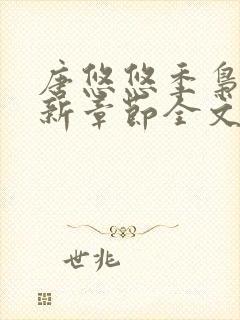 唐悠悠季枭
新章节全文
世兆